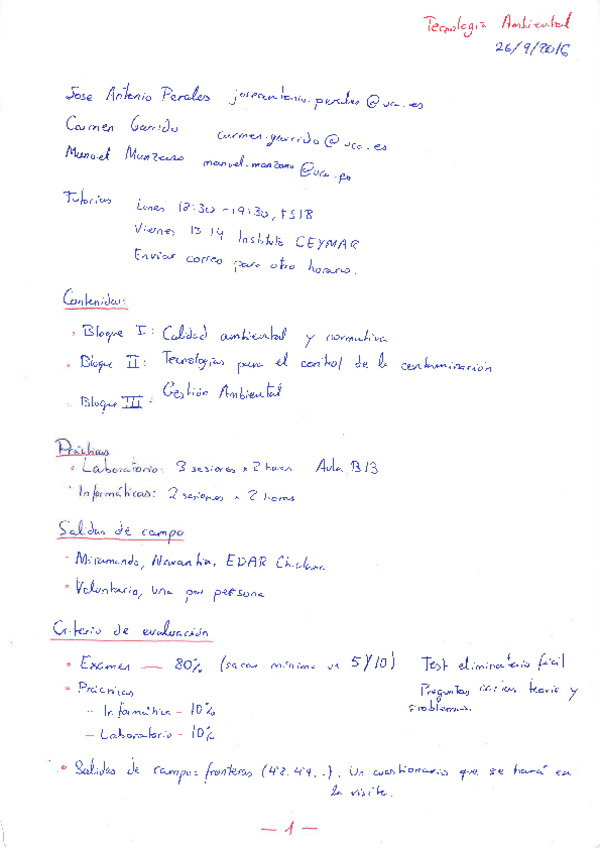 Tecnología Ambiental
26/9/2016
Jose Antonio Perales joseantonio.perales@uca.es
Carmen Garrido carmen.garrido@uca.es
Manuel Manzano manuel.manzano@uca.es
Tutorías Lunes 18:30-19:30,
Viernes 13-14 Instituto CEYMAR
Enviar correo para otro horario.
Contenidos:
Bloque I: Calidad ambiental y normativa
Bloque II: Tecnologías para el control de la contaminación
Bloque III: Gestión Ambiental
Prácticas
Laboratorio: 3 sesiones x 2 horas Aula B13
Informáticas: 2 sesiones x 2 horas
Salidas de campo
Miramundo, Navantia, EDAR Chiclana
Voluntario, una por persona
Criterio de evaluación
Examen — 80% (sacar mínimo un 5/10) Test eliminatorio fácil
Prácticas Preguntas teoría y
problemas.
- Informática - 10%
- Laboratorio - 10%
Salidas de campo: fronteras (4'8, 4'9...). Un cuestionario que se hará en
la visita.
- 1 -